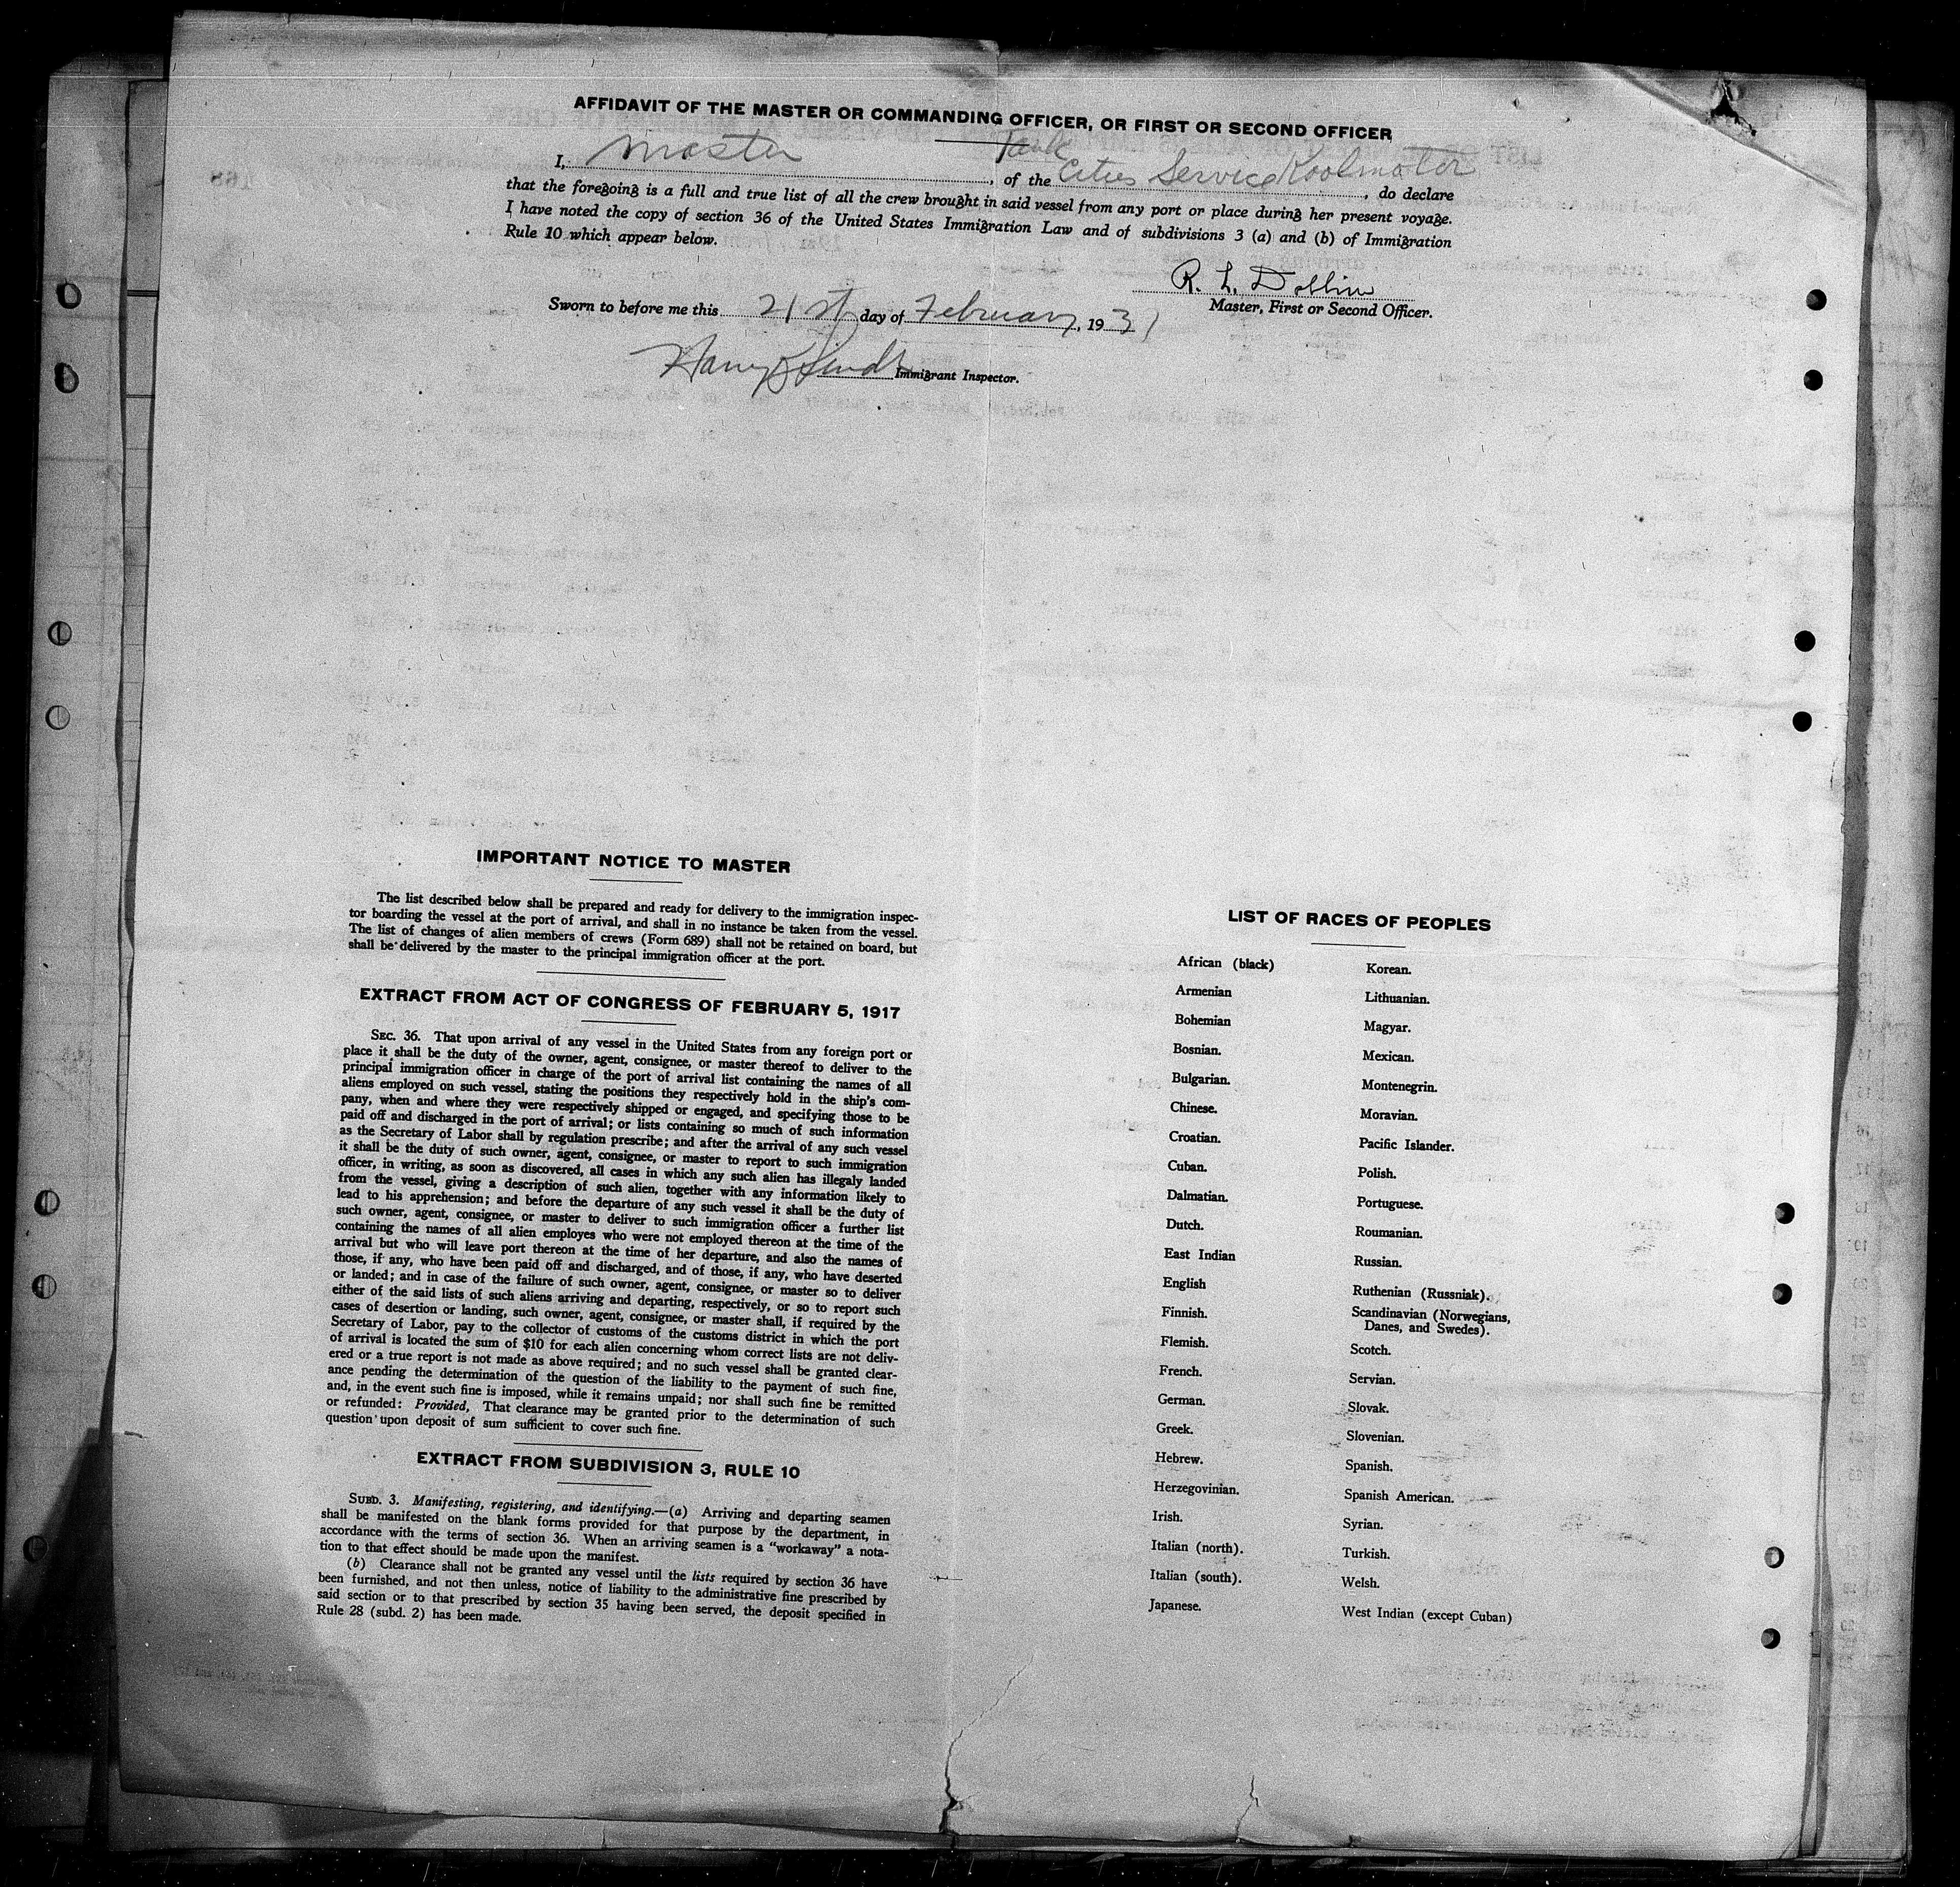 AFFIDAVIT OF THE MASTER OR COMMANDING OFFICER, OR FIRST OR SECOND OFFICER
Tank
I, Master, of the Cities Service Koolmotor, do declare
that the foregoing is a full and true list of all the crew brought in said vessel from any port or place during her present voyage.
I have noted the copy of section 36 of the United States Immigration Law and of subdivisions 3 (a) and (b) of Immigration
Rule 10 which appear below.
R. L.
Master, First or Second Officer.
Sworn to before me this 21st day of February, 1931
Harry
Immigrant Inspector.
IMPORTANT NOTICE TO MASTER
The list described below shall be prepared and ready for delivery to the immigration inspec-
tor boarding the vessel at the port of arrival, and shall in no instance be taken from the vessel.
The list of changes of alien members of crews (Form 689) shall not be retained on board, but
shall be delivered by the master to the principal immigration officer at the port.
EXTRACT FROM ACT OF CONGRESS OF FEBRUARY 5, 1917
SEC. 36. That upon arrival of any vessel in the United States from any foreign port or
place it shall be the duty of the owner, agent, consignee, or master thereof to deliver to the
principal immigration officer in charge of the port of arrival list containing the names of all
aliens employed on such vessel, stating the positions they respectively hold in the ship's com-
pany, when and where they were respectively shipped or engaged, and specifying those to be
paid off and discharged in the port of arrival; or lists containing so much of such information
as the Secretary of Labor shall by regulation prescribe; and after the arrival of any such vessel
it shall be the duty of such owner, agent, consignee, or master to report to such immigration
officer, in writing, as soon as discovered, all cases in which any such alien has illegaly landed
from the vessel, giving a description of such alien, together with any information likely to
lead to his apprehension; and before the departure of any such vessel it shall be the duty of
such owner, agent, consignee, or master to deliver to such immigration officer a further list
containing the names of all alien employes who were not employed thereon at the time of the
arrival but who will leave port thereon at the time of her departure, and also the names of
those, if any, who have been paid off and discharged, and of those, if any, who have deserted
or landed; and in case of the failure of such owner, agent, consignee, or master so to deliver
either of the said lists of such aliens arriving and departing, respectively, or so to report such
cases of desertion or landing, such owner, agent, consignee, or master shall, if required by the
Secretary of Labor, pay to the collector of customs of the customs district in which the port
of arrival is located the sum of $10 for each alien concerning whom correct lists are not deliv-
ered or a true report is not made as above required; and no such vessel shall be granted clear-
ance pending the determination of the question of the liability to the payment of such fine,
and, in the event such fine is imposed, while it remains unpaid; nor shall such fine be remitted
or refunded: Provided, That clearance may be granted prior to the determination of such
question upon deposit of sum sufficient to cover such fine.
EXTRACT FROM SUBDIVISION 3, RULE 10
SUBD. 3. Manifesting, registering, and identifying.—(a) Arriving and departing seamen
shall be manifested on the blank forms provided for that purpose by the department, in
accordance with the terms of section 36. When an arriving seamen is a "workaway" a nota-
tion to that effect should be made upon the manifest.
(b) Clearance shall not be granted any vessel until the lists required by section 36 have
been furnished, and not then unless, notice of liability to the administrative fine prescribed by
said section or to that prescribed by section 35 having been served, the deposit specified in
Rule 28 (subd. 2) has been made.
LIST OF RACES OF PEOPLES
African (black)
Armenian
Bohemian
Bosnian.
Bulgarian.
Chinese.
Croatian.
Cuban.
Dalmatian.
Dutch.
East Indian
English
Finnish.
Flemish.
French.
German.
Greek.
Hebrew.
Herzegovinian.
Irish.
Italian (north).
Italian (south).
Japanese.
Korean.
Lithuanian.
Magyar.
Mexican.
Montenegrin.
Moravian.
Pacific Islander.
Polish.
Portuguese.
Roumanian.
Russian.
Ruthenian (Russniak).
Scandinavian (Norwegians,
Danes, and Swedes).
Scotch.
Servian.
Slovak.
Slovenian.
Spanish.
Spanish American.
Syrian.
Turkish.
Welsh.
West Indian (except Cuban)